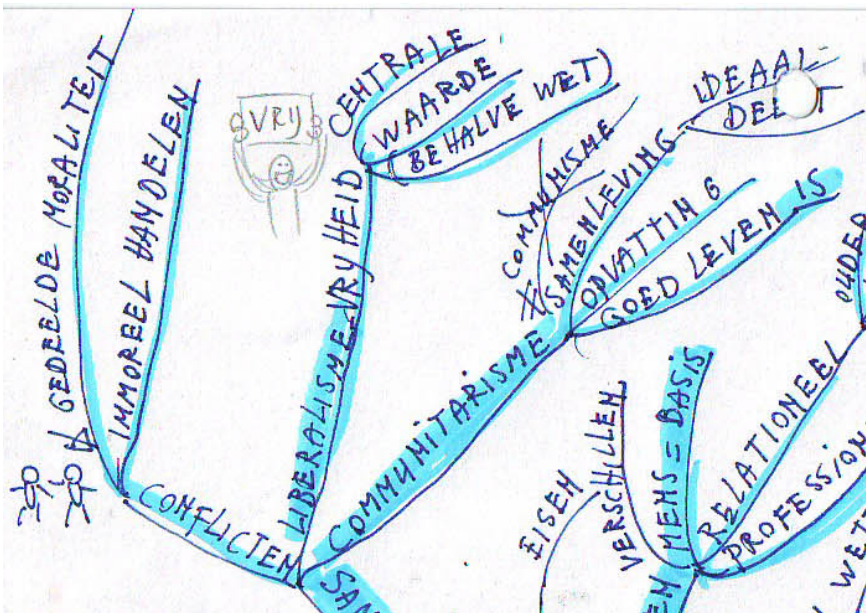 GEDEELDE MORALITEIT
IMMOREEL HANDELEN
CONFLICTEN
VRIJ
LIBERALISME = VRYHEID
CENTRALE
WAARDE
(BEHALVE WET)
COMMUNITARISME
COMMUNISME
SAMENLEVING
IDEAAL
OPVATTING
GOED LEVEN IS
EISEN
VERSCHILLEN
MENS = BASIS
RELATIONEEL
OUDER